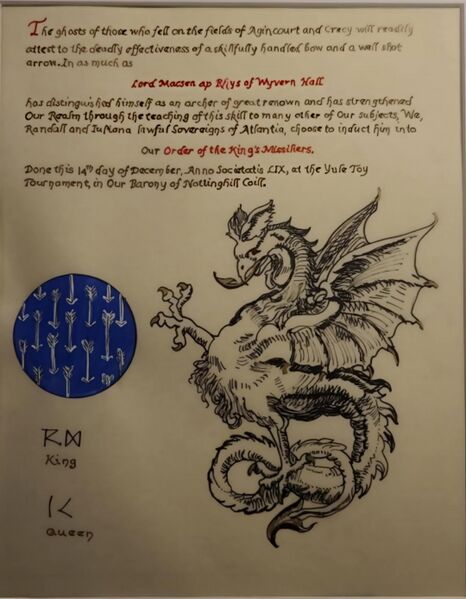 The ghosts of those who fell on the fields of Agincourt and Crecy will readily
attest to the deadly effectiveness of a skillfully handled bow and a well shot
arrow. In as much as
Lord Macsen ap Rhys of Wyvern Hall
has distinguished himself as an archer of great renown and has strengthened
Our Realm through the teaching of this skill to many other of Our subjects, We,
Randall and Iuliana lawful Sovereigns of Atlantia, choose to induct him into
Our Order of the King's Missiliers.
Done this 14th day of December, Anno Societatis LIX, at the Yule Toy
Tournament, in Our Barony of Nottinghill Coill.
ᚱᛞ
King
ᛁᚲ
Queen